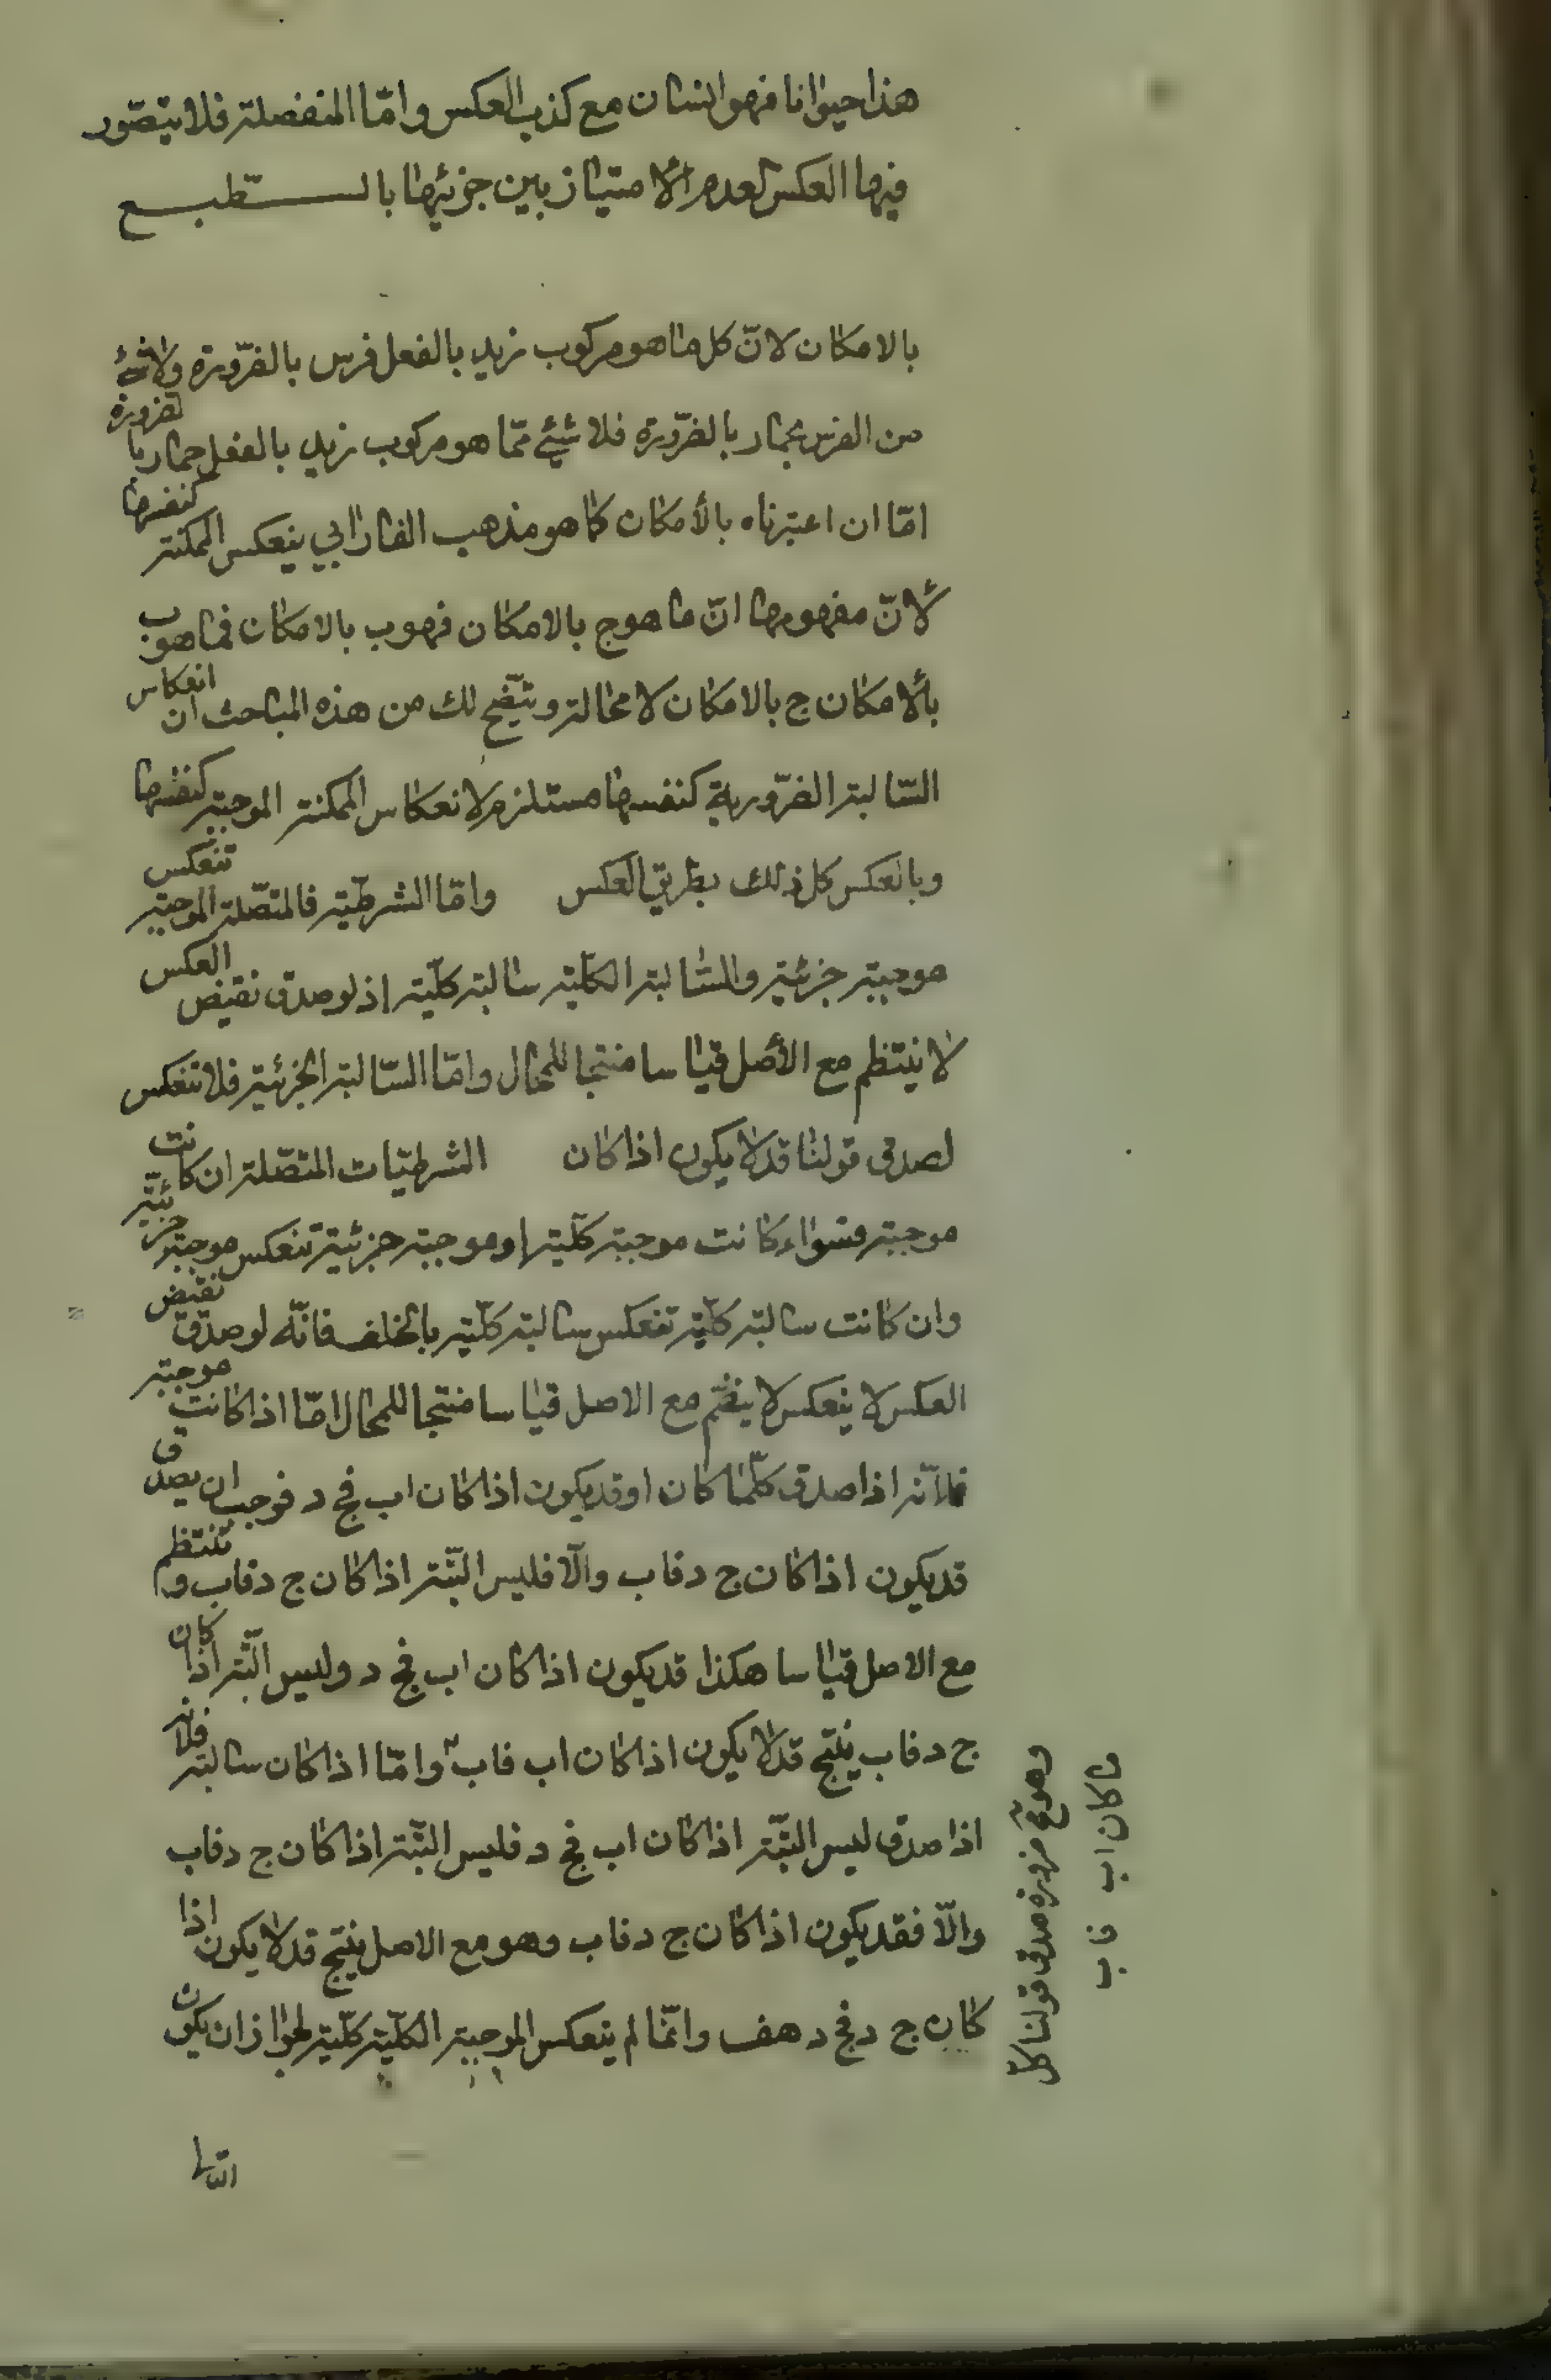 هذا حيوانا فهو انسان مع كذب العكس وامّا المنفصلة فلا يتصّور
فيها العكس لعدم الامتياز بين جزئيها بالطبع
بالامكان لانّ كل ما هو مركوب زيد بالفعل فرس بالضّرورة ولا شئ
من الفرس بحمار بالضّرورة فلا شئ ممّا هو مركوب زيد بالفعل حمار بالضرورة
امّا ان اعتبرناه بالأمكان كما هو مذهب الفارابي ينعكس الممكنة كنفسها
لأنّ مفهومها انّ ما هو ج بالامكان فهو ب بالامكان فما هو ب
بالامكان ج بالامكان لا محالة ويتّضح لك من هذه المباحث ان انعكاس
السّالبة الضّرورية كنفسها مستلزم لانعكاس الممكنة الموجبة كنفسها
وبالعكس كل ذلك بطريق العكس وامّا الشرطيّة فالمتصّلة الموجبة تنعكس
موجبة جزئية والسّالبة الكلّية سالبة كلّية اذ لو صدق نقيض العكس
لا نيتظم مع الأصل قياسا منتجا للمحال وامّا السّالبة الجزئية فلا تنعكس
لصدق قولنا قد لا يكون اذا كان الشرطيّات المتصّلة ان كانت
موجبة فسواء كانت موجبة كلّية او موجبة جزئية تنعكس موجبة جزئية
وان كانت سالبة كلّية تنعكس سالبة كلّية بالخلف فانّه لو صدق نقيض
العكس لا ينعكس لا ينظّم مع الاصل قياسا منتجا للمحال امّا اذا كانت موجبة
فلانّه اذا صدق كلّما كان او قد يكون اذا كان اب فج د فوجب ان يصدق
قد يكون اذا كان ج د فاب والّا فليس البتّة اذا كان ج د فاب و تنتظم
مع الاصل قياسا هكذا قد يكون اذا كان اب فج د وليس البتّة اذا كان
ج د فاب ينتج قد لا يكون اذا كان اب فاب وامّا اذا كان سالبة فلانه
اذا صدق ليس البتّة اذا كان اب فج د فليس البتّة اذا كان ج د فاب
والّا فقد يكون اذا كان ج د فاب وهو مع الاصل ينتج قد لا يكون اذا
كان ج د فج د هف وانّما لم ينعكس الموجبة الكلّية كلّية لجواز ان يكون
وهو مح ضرورة صدق قولنا كل
ما كان اب فاب
التا